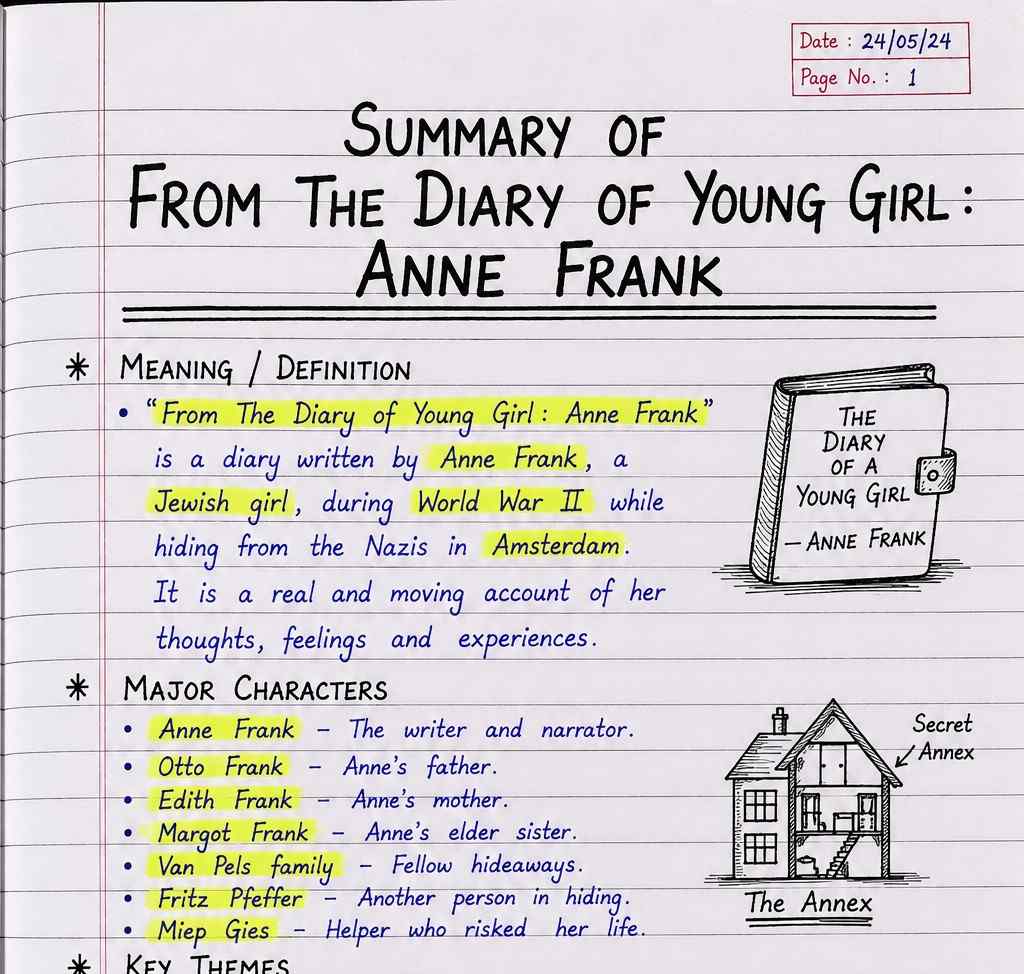 Date : 24/05/24
Page No. : 1
SUMMARY OF
FROM THE DIARY OF YOUNG GIRL :
ANNE FRANK
* MEANING / DEFINITION
• "From The Diary of Young Girl : Anne Frank"
is a diary written by Anne Frank, a
Jewish girl, during World War II while
hiding from the Nazis in Amsterdam.
It is a real and moving account of her
thoughts, feelings and experiences.
THE
DIARY
OF A
YOUNG GIRL
– ANNE FRANK
* MAJOR CHARACTERS
• Anne Frank – The writer and narrator.
• Otto Frank – Anne's father.
• Edith Frank – Anne's mother.
• Margot Frank – Anne's elder sister.
• Van Pels family – Fellow hideaways.
• Fritz Pfeffer – Another person in hiding.
• Miep Gies – Helper who risked her life.
Secret
Annex
The Annex
* KEY THEMES